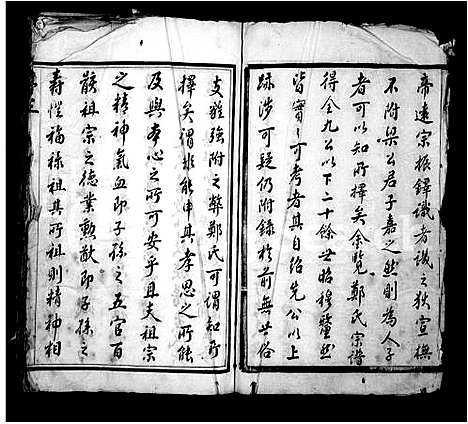 帝遠宗振鐸識者譏之狄宣撫
不附梁公君子嘉之然則為人子
者可以知所擇矣余覽鄭氏宗譜
得全九公以下二十餘世昭穆釐然
皆實實可考者其自紹先公以上
跡涉可疑仍附錄於前無世俗
支離強附之弊鄭氏可謂知所
擇矣謂非能申其孝思之所能
及與本心之所可安乎且夫祖宗
之精神氣血即子孫之五官百
骸祖宗之德業勳猷即子孫之
壽愷福祿祖其所祖則精神相